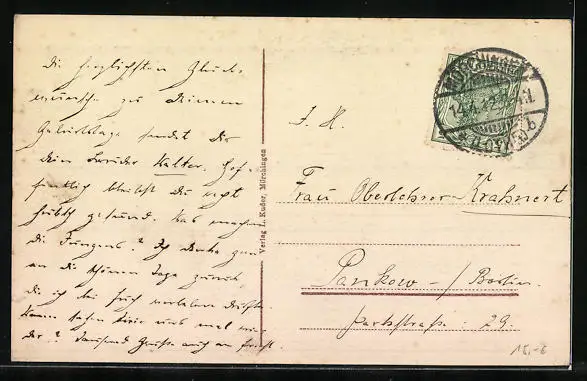 Die herzlichsten Glück-
wünsche zu Deinem
Geburtstage sendet Dir
Dein Bruder Walter. Hof-
fentlich bleibst Du recht
hübsch gesund. Was machen
die Jungens? Ich denke gern
an die schönen Tage zurück
die ich bei Euch verleben durfte.
Wann sehen wir uns mal wie-
der? Tausend Grüße auch an
Verlag L. Kuder, Mörchingen
F. H.
Frau Oberlehrer Krahnert
Pankow - / Berlin.
Parkstraße: 29.
15,-6